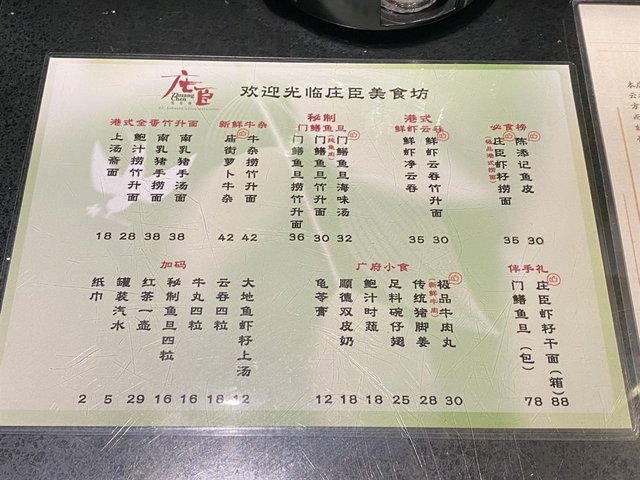 庄臣
Zhuang Chen
欢迎光临庄臣美食坊
港式全蛋竹升面
上汤斋面 18
鲍汁捞竹升面 28
南乳猪手捞面 38
南乳猪手汤面 38
新鲜牛杂
庙街萝卜牛杂 42
牛杂捞竹升面 42
秘制
门鳝鱼旦
门鳝鱼旦捞竹升面 36
门鳝鱼旦竹升面 30
(纯鱼肉)
门鳝鱼旦海味汤 32
港式
鲜虾云吞
鲜虾净云吞 35
鲜虾云吞竹升面 30
必食捞
(极品港式捞面)
庄臣虾籽捞面 35
陈添记鱼皮 30
加码
纸巾 2
罐装汽水 5
红茶一壶 29
秘制鱼旦四粒 16
牛丸四粒 16
云吞四粒 18
大地鱼虾籽上汤 12
广府小食
龟苓膏 12
顺德双皮奶 18
鲍汁时蔬 18
足料碗仔翅 25
传统猪脚姜 28
(新鲜牛肉)
极品牛肉丸 30
伴手礼
门鳝鱼旦(包) 78
庄臣虾籽干面(箱) 88